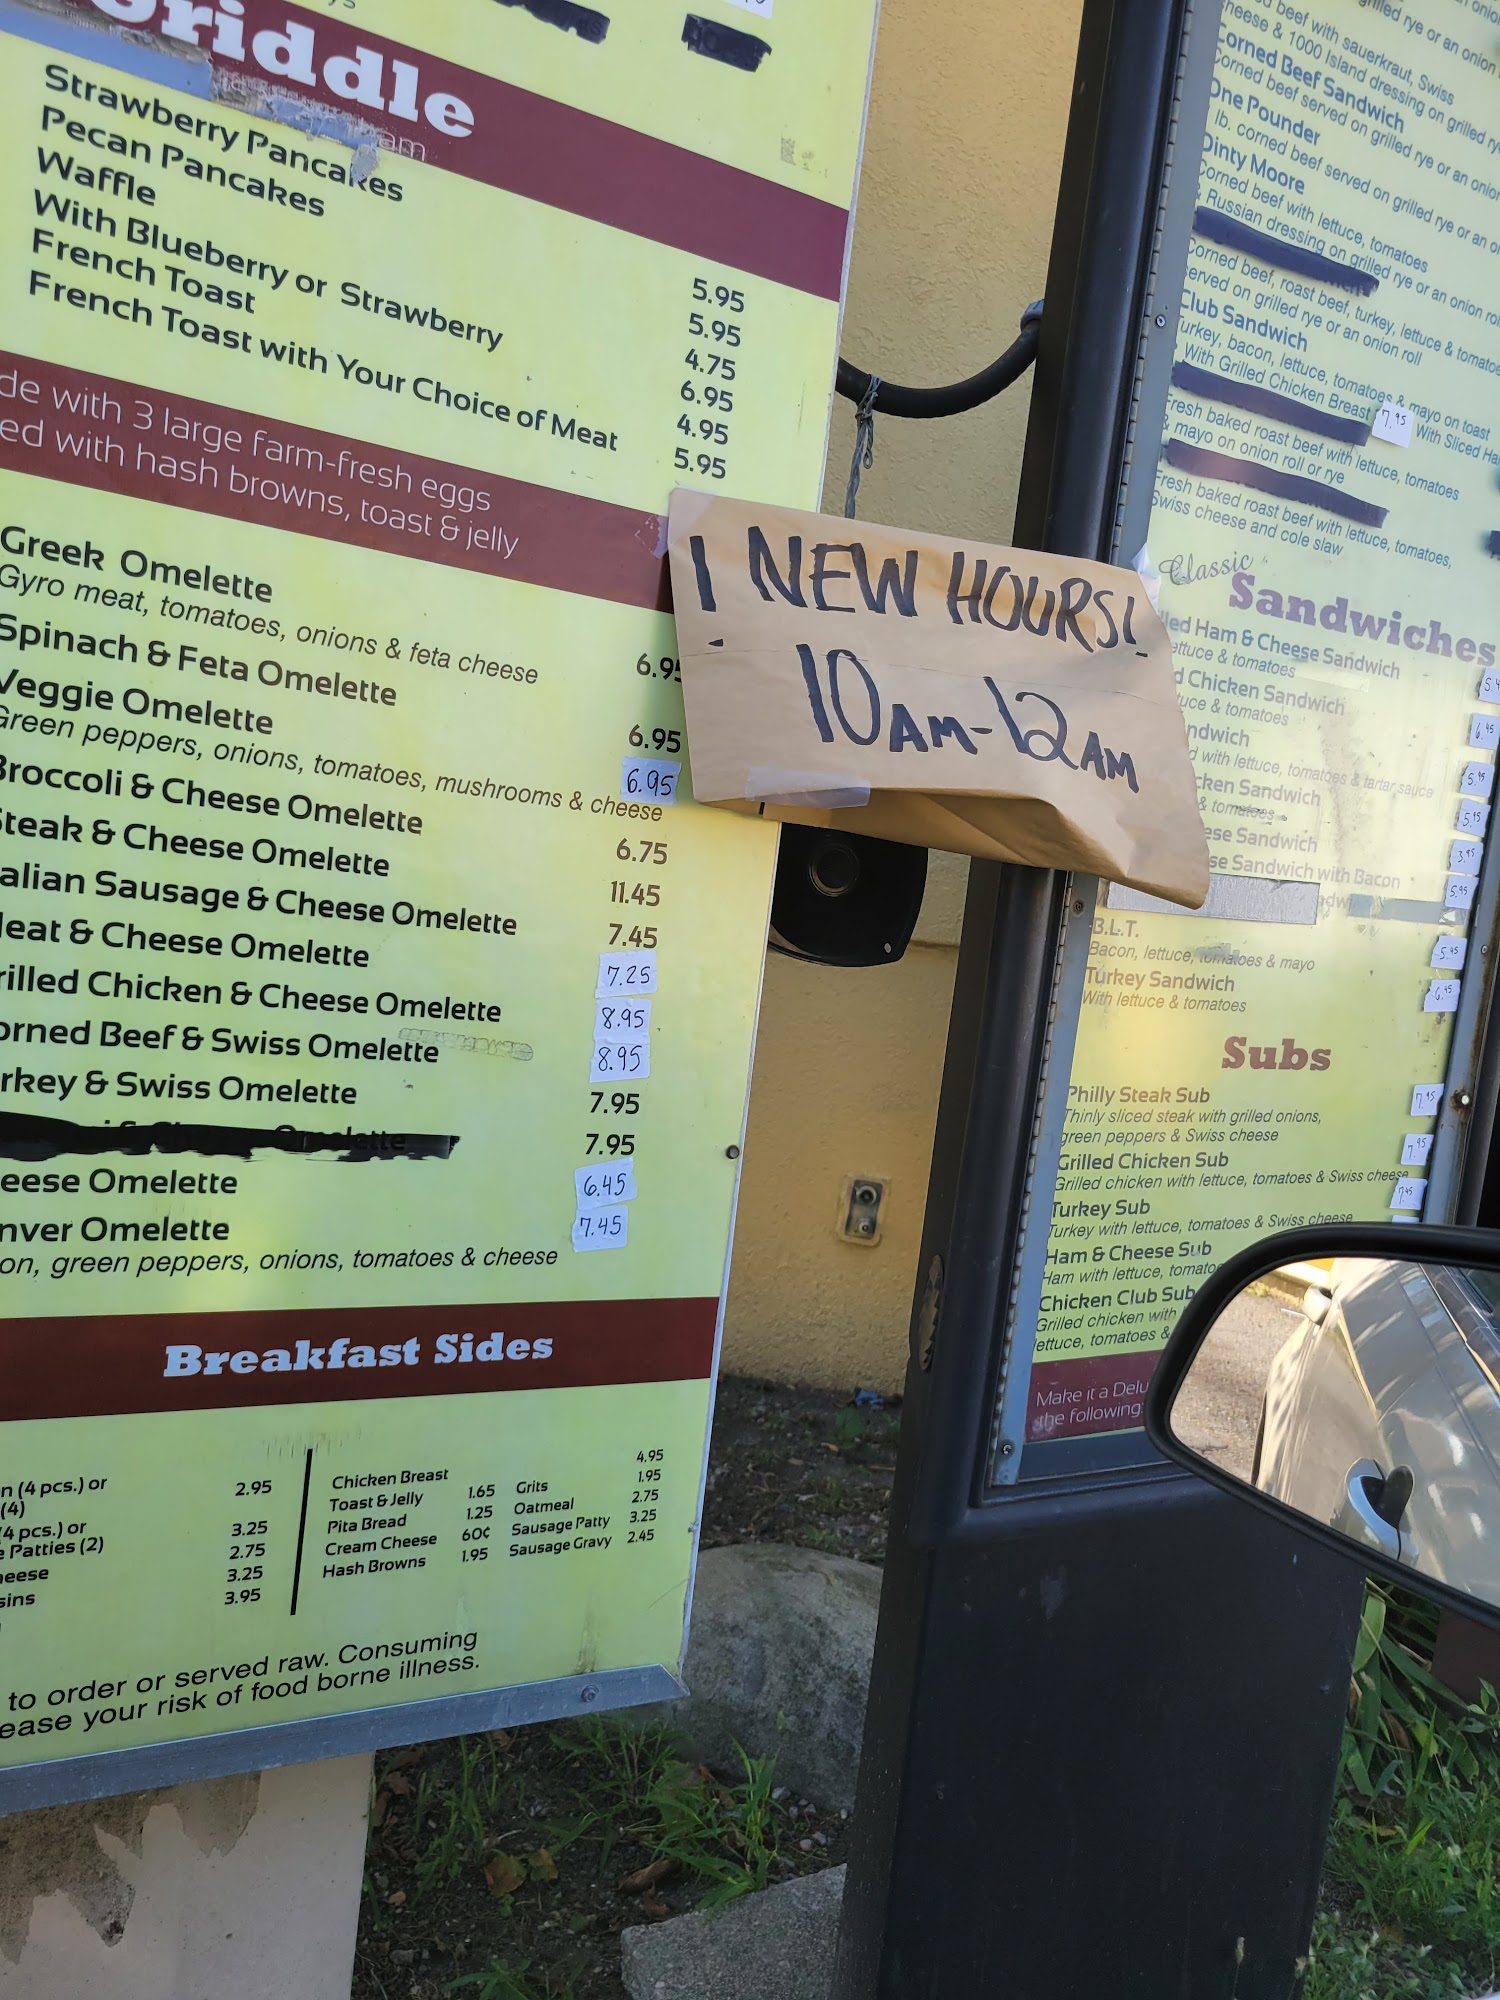 Griddle
am
Strawberry Pancakes 5.95
Pecan Pancakes 5.95
Waffle 4.75
With Blueberry or Strawberry 6.95
French Toast 4.95
French Toast with Your Choice of Meat 5.95
de with 3 large farm-fresh eggs
ed with hash browns, toast & jelly
Greek Omelette 6.95
Gyro meat, tomatoes, onions & feta cheese
Spinach & Feta Omelette 6.95
Veggie Omelette 6.95
Green peppers, onions, tomatoes, mushrooms & cheese
Broccoli & Cheese Omelette 6.75
Steak & Cheese Omelette 11.45
alian Sausage & Cheese Omelette 7.45
Meat & Cheese Omelette 7.25
rilled Chicken & Cheese Omelette 8.95
orned Beef & Swiss Omelette 8.95
rkey & Swiss Omelette 7.95
Omelette 7.95
eese Omelette 6.45
nver Omelette 7.45
on, green peppers, onions, tomatoes & cheese
Breakfast Sides
n (4 pcs.) or 2.95
(4)
(4 pcs.) or 3.25
e Patties (2) 2.75
heese 3.25
sins 3.95
Chicken Breast 4.95
Toast & Jelly 1.65 Grits 1.95
Pita Bread 1.25 Oatmeal 2.75
Cream Cheese 60¢ Sausage Patty 3.25
Hash Browns 1.95 Sausage Gravy 2.45
to order or served raw. Consuming
ease your risk of food borne illness.
¡ NEW HOURS!
10AM-12AM
grilled rye or an onion
d beef with sauerkraut, Swiss
cheese & 1000 Island dressing on grilled ry
Corned Beef Sandwich
Corned beef served on grilled rye or an onion
One Pounder
lb. corned beef served on grilled rye or an on
Dinty Moore
Corned beef with lettuce, tomatoes
& Russian dressing on grilled rye or an onion rol
Corned beef, roast beef, turkey, lettuce & tomatoe
served on grilled rye or an onion roll
Club Sandwich
Turkey, bacon, lettuce, tomatoes & mayo on toast
With Grilled Chicken Breast 7.95 With Sliced Ha
Fresh baked roast beef with lettuce, tomatoes
& mayo on onion roll or rye
Fresh baked roast beef with lettuce, tomatoes,
Swiss cheese and cole slaw
Classic
Sandwiches
lled Ham & Cheese Sandwich 5.4
ettuce & tomatoes
d Chicken Sandwich 6.45
tuce & tomatoes
ndwich 5.95
d with lettuce, tomatoes & tartar sauce
cken Sandwich 5.95
& tomatoes
ese Sandwich 3.95
se Sandwich with Bacon 5.95
B.L.T. 5.45
Bacon, lettuce, tomatoes & mayo
Turkey Sandwich 6.45
With lettuce & tomatoes
Subs
Philly Steak Sub 7.95
Thinly sliced steak with grilled onions,
green peppers & Swiss cheese
Grilled Chicken Sub 7.95
Grilled chicken with lettuce, tomatoes & Swiss cheese
Turkey Sub 7.45
Turkey with lettuce, tomatoes & Swiss cheese
Ham & Cheese Sub
Ham with lettuce, tomatoe
Chicken Club Sub
Grilled chicken with
lettuce, tomatoes &
Make it a Delu
the following: